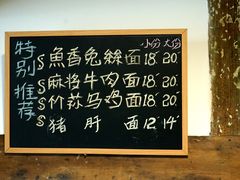 特别推荐
小份 大份
S 魚香兔絲 面 18 20
S 麻将牛肉 面 18 20
S 竹荪乌鸡 面 18 20
S 猪肝 面 12 14